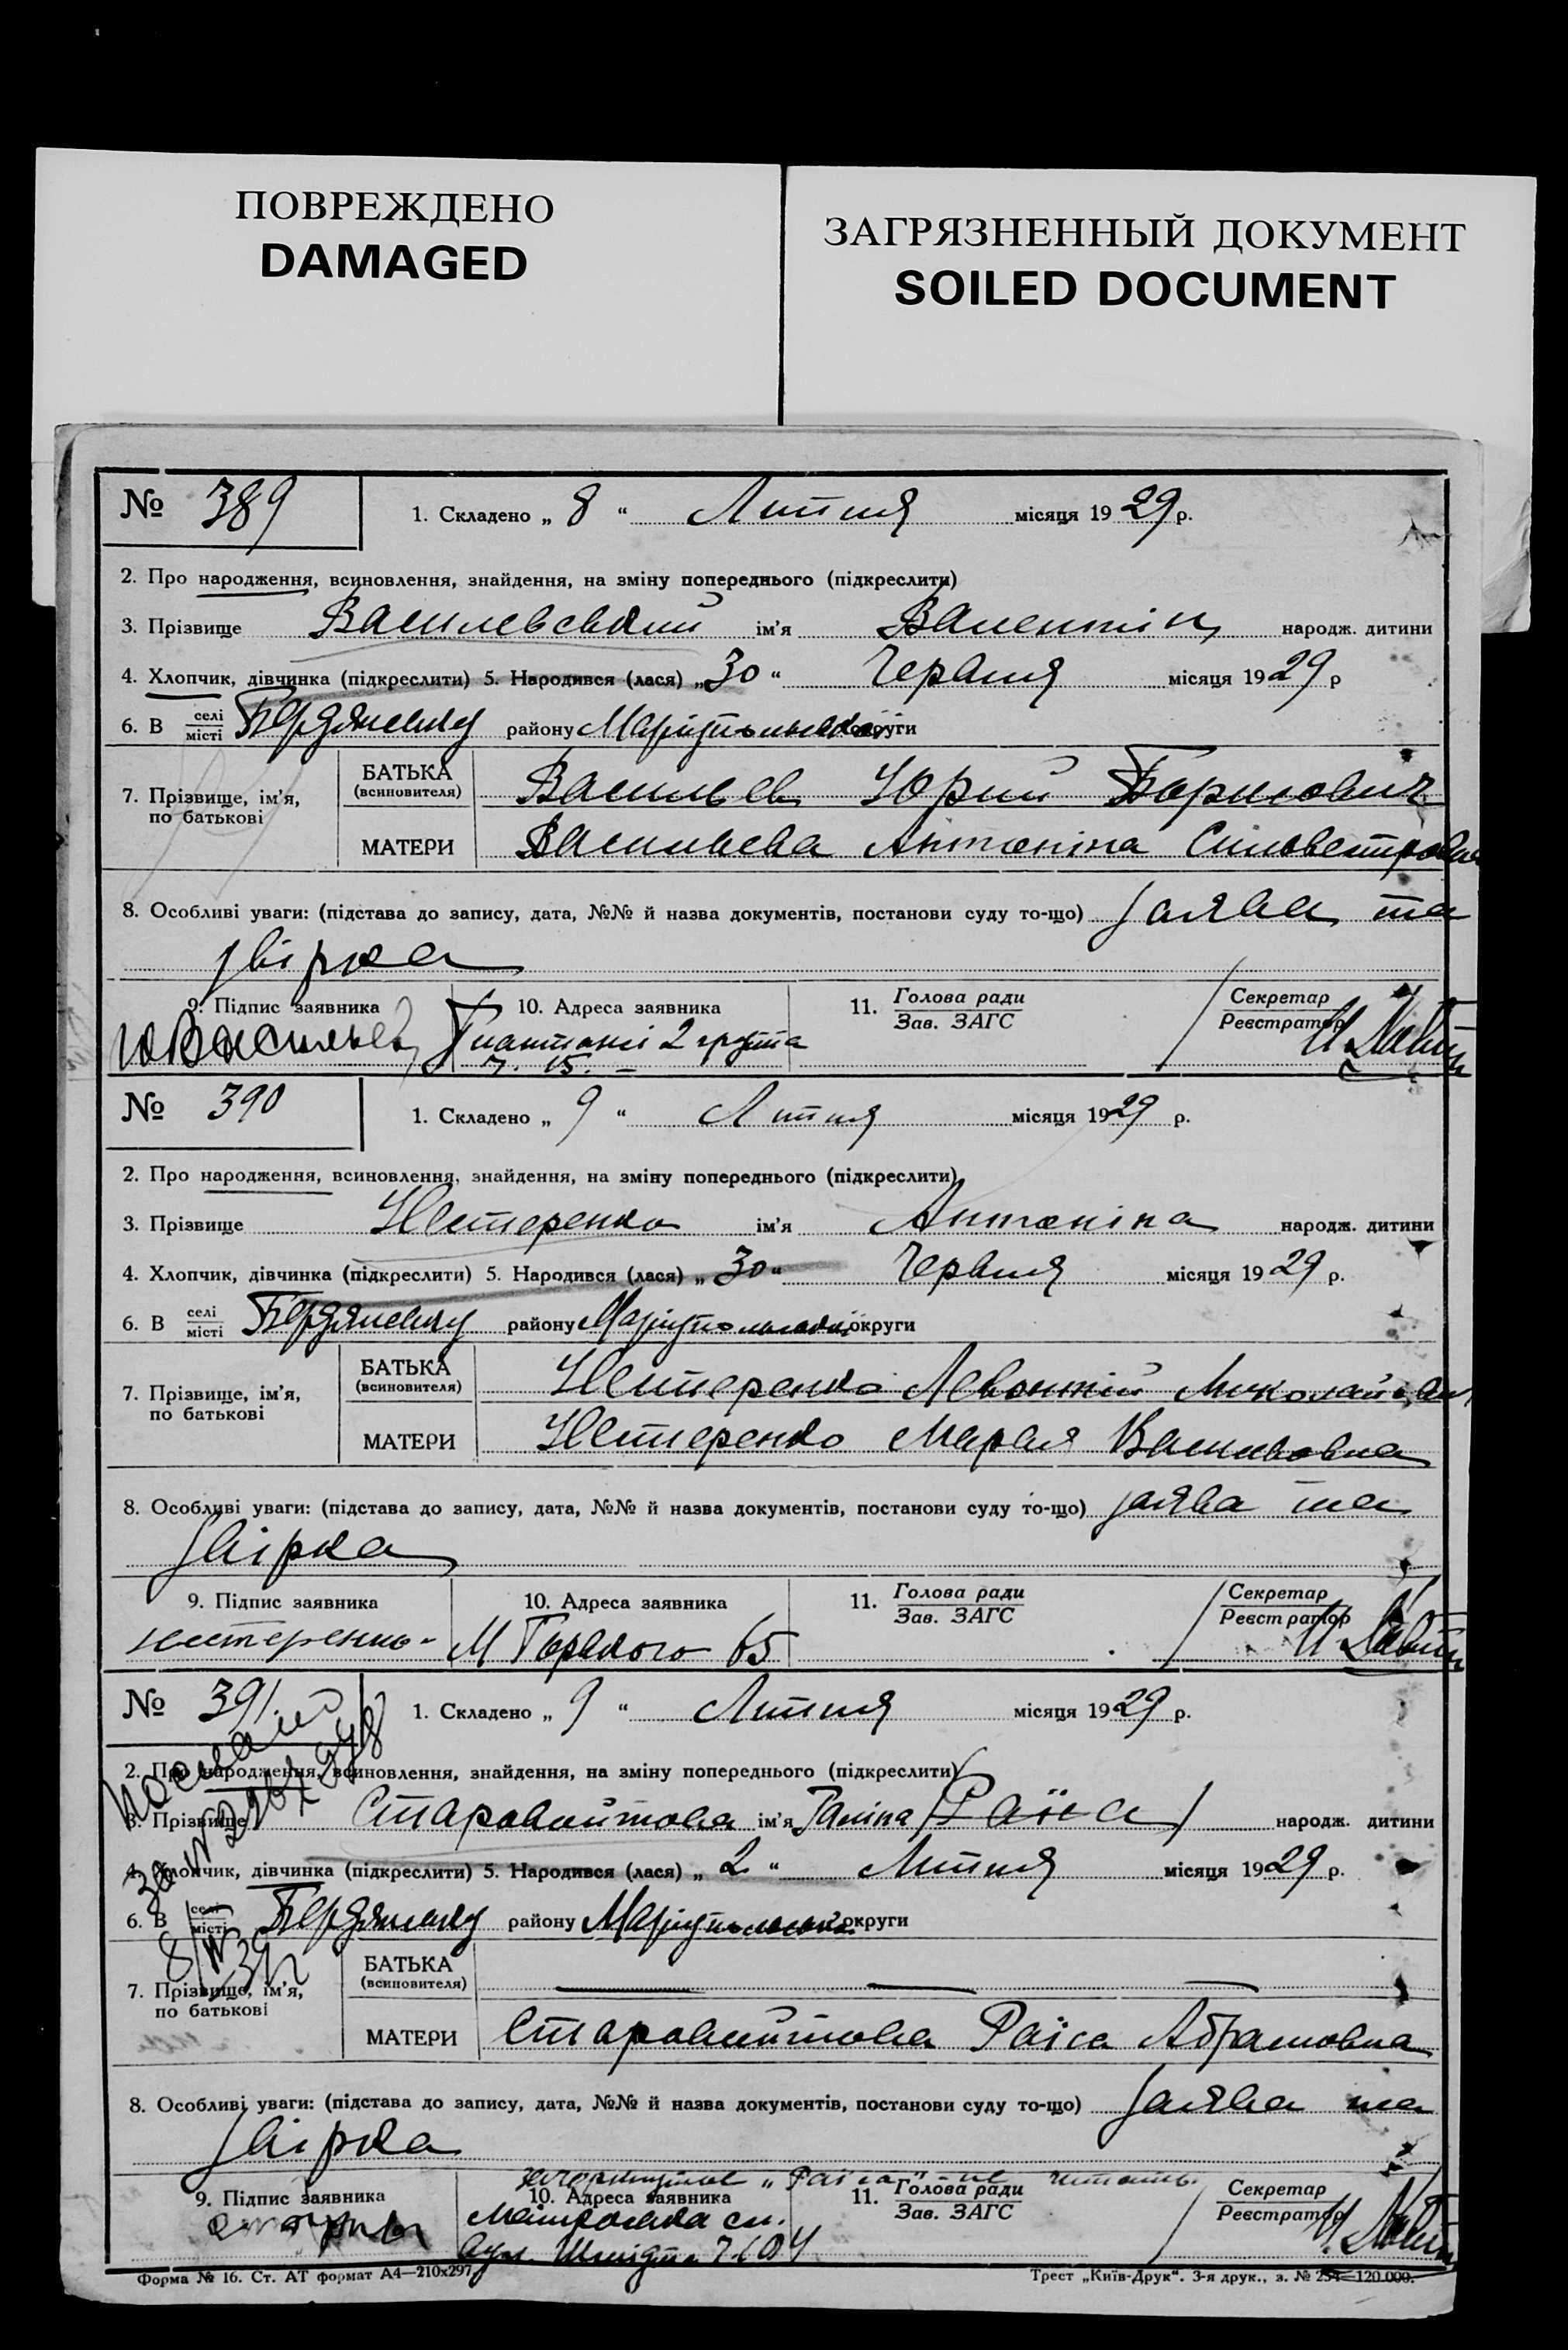 ПОВРЕЖДЕНО
DAMAGED
ЗАГРЯЗНЕННЫЙ ДОКУМЕНТ
SOILED DOCUMENT
№ 389
1. Складено „ 8 “ Липня місяця 19 29 р.
2. Про народження, всиновлення, знайдення, на зміну попереднього (підкреслити)
3. Прізвище Василевський ім’я Валентін народж. дитини
4. Хлопчик, дівчинка (підкреслити) 5. Народився (лася) „ 30 “ Червня місяця 19 29 р
6. В селі місті Бердянську району Маріупольської округи
7. Прізвище, ім’я, по батькові
БАТЬКА (всиновителя) Васильєв Юрий Борисович
МАТЕРИ Васильева Антоніна
8. Особливі уваги: (підстава до запису, дата, №№ й назва документів, постанови суду то-що) заява та
звірка
9. Підпис заявника ЮВасильев
10. Адреса заявника 2 група
ч. 15.
11. Голова ради Зав. ЗАГС
Секретар Реєстратор
№ 390
1. Складено „ 9 “ Липня місяця 19 29 р.
2. Про народження, всиновлення, знайдення, на зміну попереднього (підкреслити)
3. Прізвище Нестеренко ім’я Антоніна народж. дитини
4. Хлопчик, дівчинка (підкреслити) 5. Народився (лася) „ 30 “ Червня місяця 19 29 р.
6. В селі місті Бердянську району Маріупольської округи
7. Прізвище, ім’я, по батькові
БАТЬКА (всиновителя) Нестеренко Левонтій
МАТЕРИ Нестеренко Мария Василовна
8. Особливі уваги: (підстава до запису, дата, №№ й назва документів, постанови суду то-що) заява та
звірка
9. Підпис заявника нестеренко
10. Адреса заявника М Горького 65
11. Голова ради Зав. ЗАГС
Секретар Реєстратор
№ 391
1. Складено „ 9 “ Липня місяця 19 29 р.
2. Про народження, всиновлення, знайдення, на зміну попереднього (підкреслити)
3. Прізвище Старовойтова ім’я Галіна (Раїса) народж. дитини
4. Хлопчик, дівчинка (підкреслити) 5. Народився (лася) „ 2 “ Липня місяця 19 29 р.
6. В селі місті Бердянську району Маріупольської округи
7. Прізвище, ім’я, по батькові
БАТЬКА (всиновителя) — — —
МАТЕРИ Старовойтова Раїса Абрамовна
8. Особливі уваги: (підстава до запису, дата, №№ й назва документів, постанови суду то-що) заява та
звірка
„Раїса“ - не читать
9. Підпис заявника
10. Адреса заявника
вул. Шмідта
11. Голова ради Зав. ЗАГС
Секретар Реєстратор
Форма № 16. Ст. АТ формат А4—210х297
Трест „Київ-Друк“. 3-я друк., з. № 254—120.000.